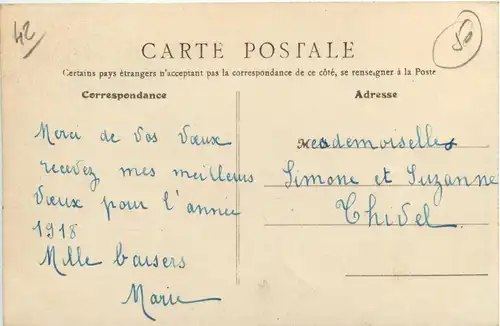 42
50
CARTE POSTALE
Certains pays étrangers n'acceptant pas la correspondance de ce côté, se renseigner à la Poste
Correspondance
Merci de vos vœux
recevez mes meilleurs
vœux pour l'année
1918
Mille baisers
Marie
Adresse
Mesdemoiselles
Simone et Suzanne
Thivel